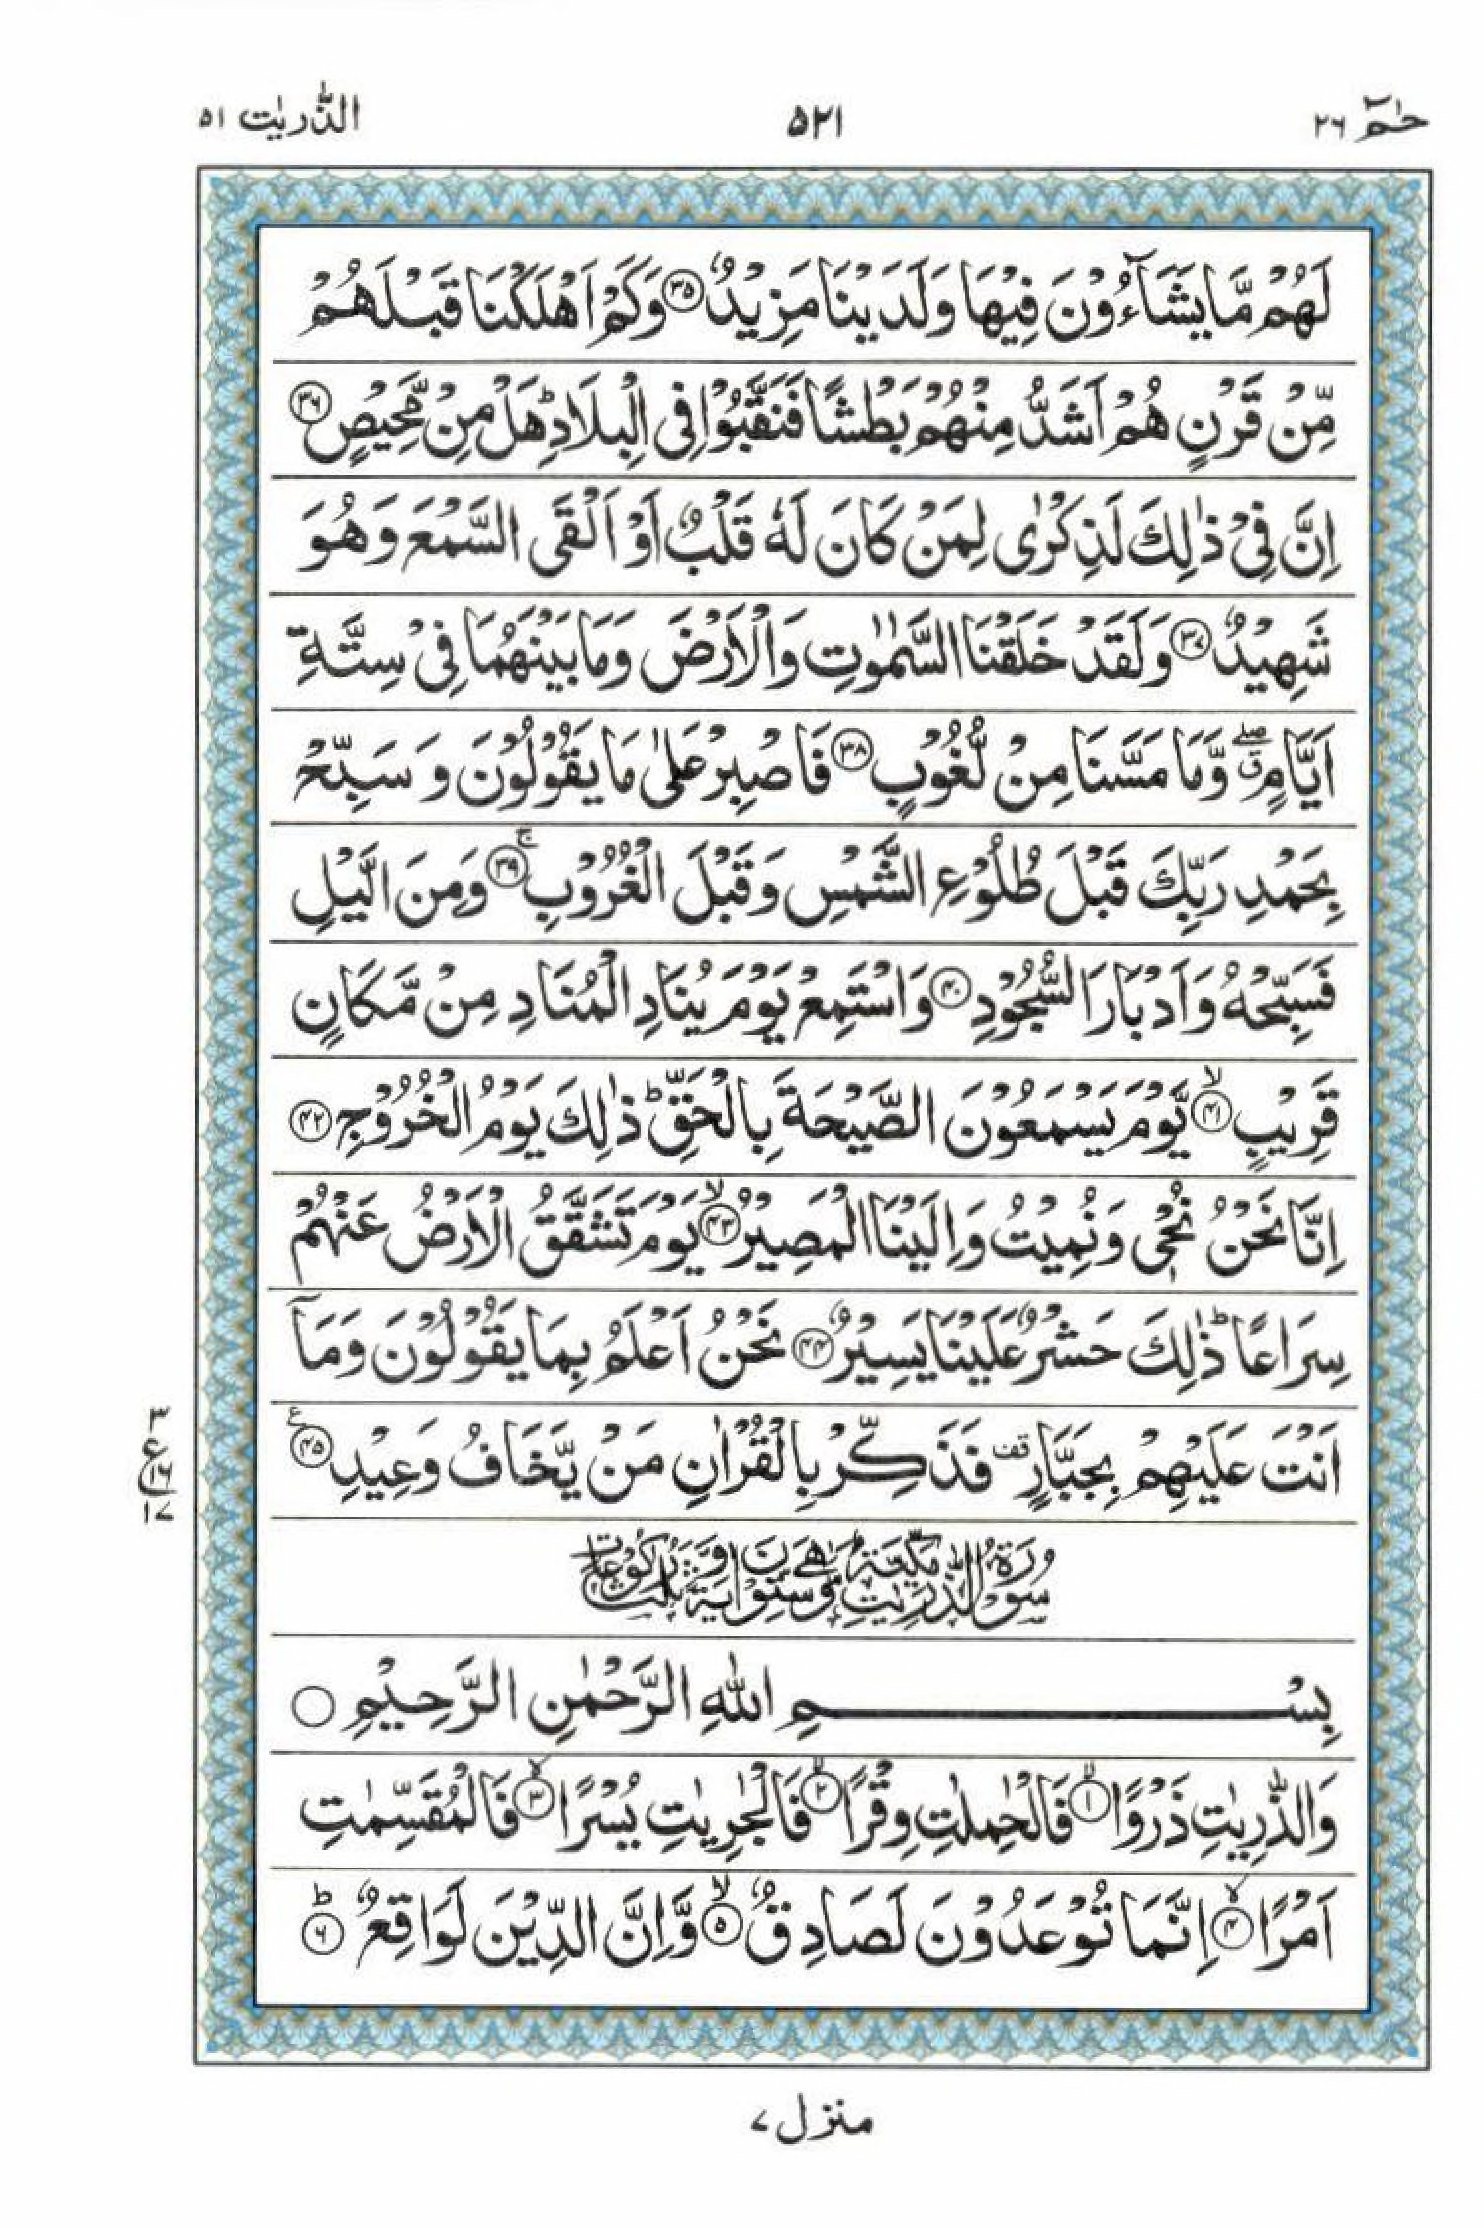 حٰمٓ ٢٦
٥٢١
الذّٰرِيٰت ٥١
لَهُمْ مَّا يَشَآءُوْنَ فِيْهَا وَلَدَيْنَا مَزِيْدٌ ۝٣٥ وَكَمْ اَهْلَكْنَا قَبْلَهُمْ
مِّنْ قَرْنٍ هُمْ اَشَدُّ مِنْهُمْ بَطْشًا فَنَقَّبُوْا فِى الْبِلَادِ ؕ هَلْ مِنْ مَّحِيْصٍ ۝٣٦
اِنَّ فِيْ ذٰلِكَ لَذِكْرٰى لِمَنْ كَانَ لَهٗ قَلْبٌ اَوْ اَلْقَى السَّمْعَ وَهُوَ
شَهِيْدٌ ۝٣٧ وَلَقَدْ خَلَقْنَا السَّمٰوٰتِ وَالْاَرْضَ وَمَا بَيْنَهُمَا فِيْ سِتَّةِ
اَيَّامٍ ۖق وَّمَا مَسَّنَا مِنْ لُّغُوْبٍ ۝٣٨ فَاصْبِرْ عَلٰى مَا يَقُوْلُوْنَ وَسَبِّحْ
بِحَمْدِ رَبِّكَ قَبْلَ طُلُوْعِ الشَّمْسِ وَقَبْلَ الْغُرُوْبِ ۝٣٩ ۚ وَمِنَ الَّيْلِ
فَسَبِّحْهُ وَاَدْبَارَ السُّجُوْدِ ۝٤٠ وَاسْتَمِعْ يَوْمَ يُنَادِ الْمُنَادِ مِنْ مَّكَانٍ
قَرِيْبٍ ۝٤١ ۙ يَّوْمَ يَسْمَعُوْنَ الصَّيْحَةَ بِالْحَقِّ ؕ ذٰلِكَ يَوْمُ الْخُرُوْجِ ۝٤٢
اِنَّا نَحْنُ نُحْيٖ وَنُمِيْتُ وَاِلَيْنَا الْمَصِيْرُ ۝٤٣ ۙ يَوْمَ تَشَقَّقُ الْاَرْضُ عَنْهُمْ
سِرَاعًا ؕ ذٰلِكَ حَشْرٌ عَلَيْنَا يَسِيْرٌ ۝٤٤ نَحْنُ اَعْلَمُ بِمَا يَقُوْلُوْنَ وَمَآ
اَنْتَ عَلَيْهِمْ بِجَبَّارٍ قف فَذَكِّرْ بِالْقُرْاٰنِ مَنْ يَّخَافُ وَعِيْدِ ۝٤٥ ع
٣
ع
١٦
١٧
سُوْرَةُ الذّٰرِيٰتِ مَكِّيَّةٌ وَّهِيَ سِتُّوْنَ اٰيَةً وَّثَلٰثُ رُكُوْعَاتٍ
بِسْمِ اللّٰهِ الرَّحْمٰنِ الرَّحِيْمِ ۝
وَالذّٰرِيٰتِ ذَرْوًا ۝١ ۙ فَالْحٰمِلٰتِ وِقْرًا ۝٢ ۙ فَالْجٰرِيٰتِ يُسْرًا ۝٣ ۙ فَالْمُقَسِّمٰتِ
اَمْرًا ۝٤ ۙ اِنَّمَا تُوْعَدُوْنَ لَصَادِقٌ ۝٥ ۙ وَّاِنَّ الدِّيْنَ لَوَاقِعٌ ۝٦ ؕ
منزل ٧